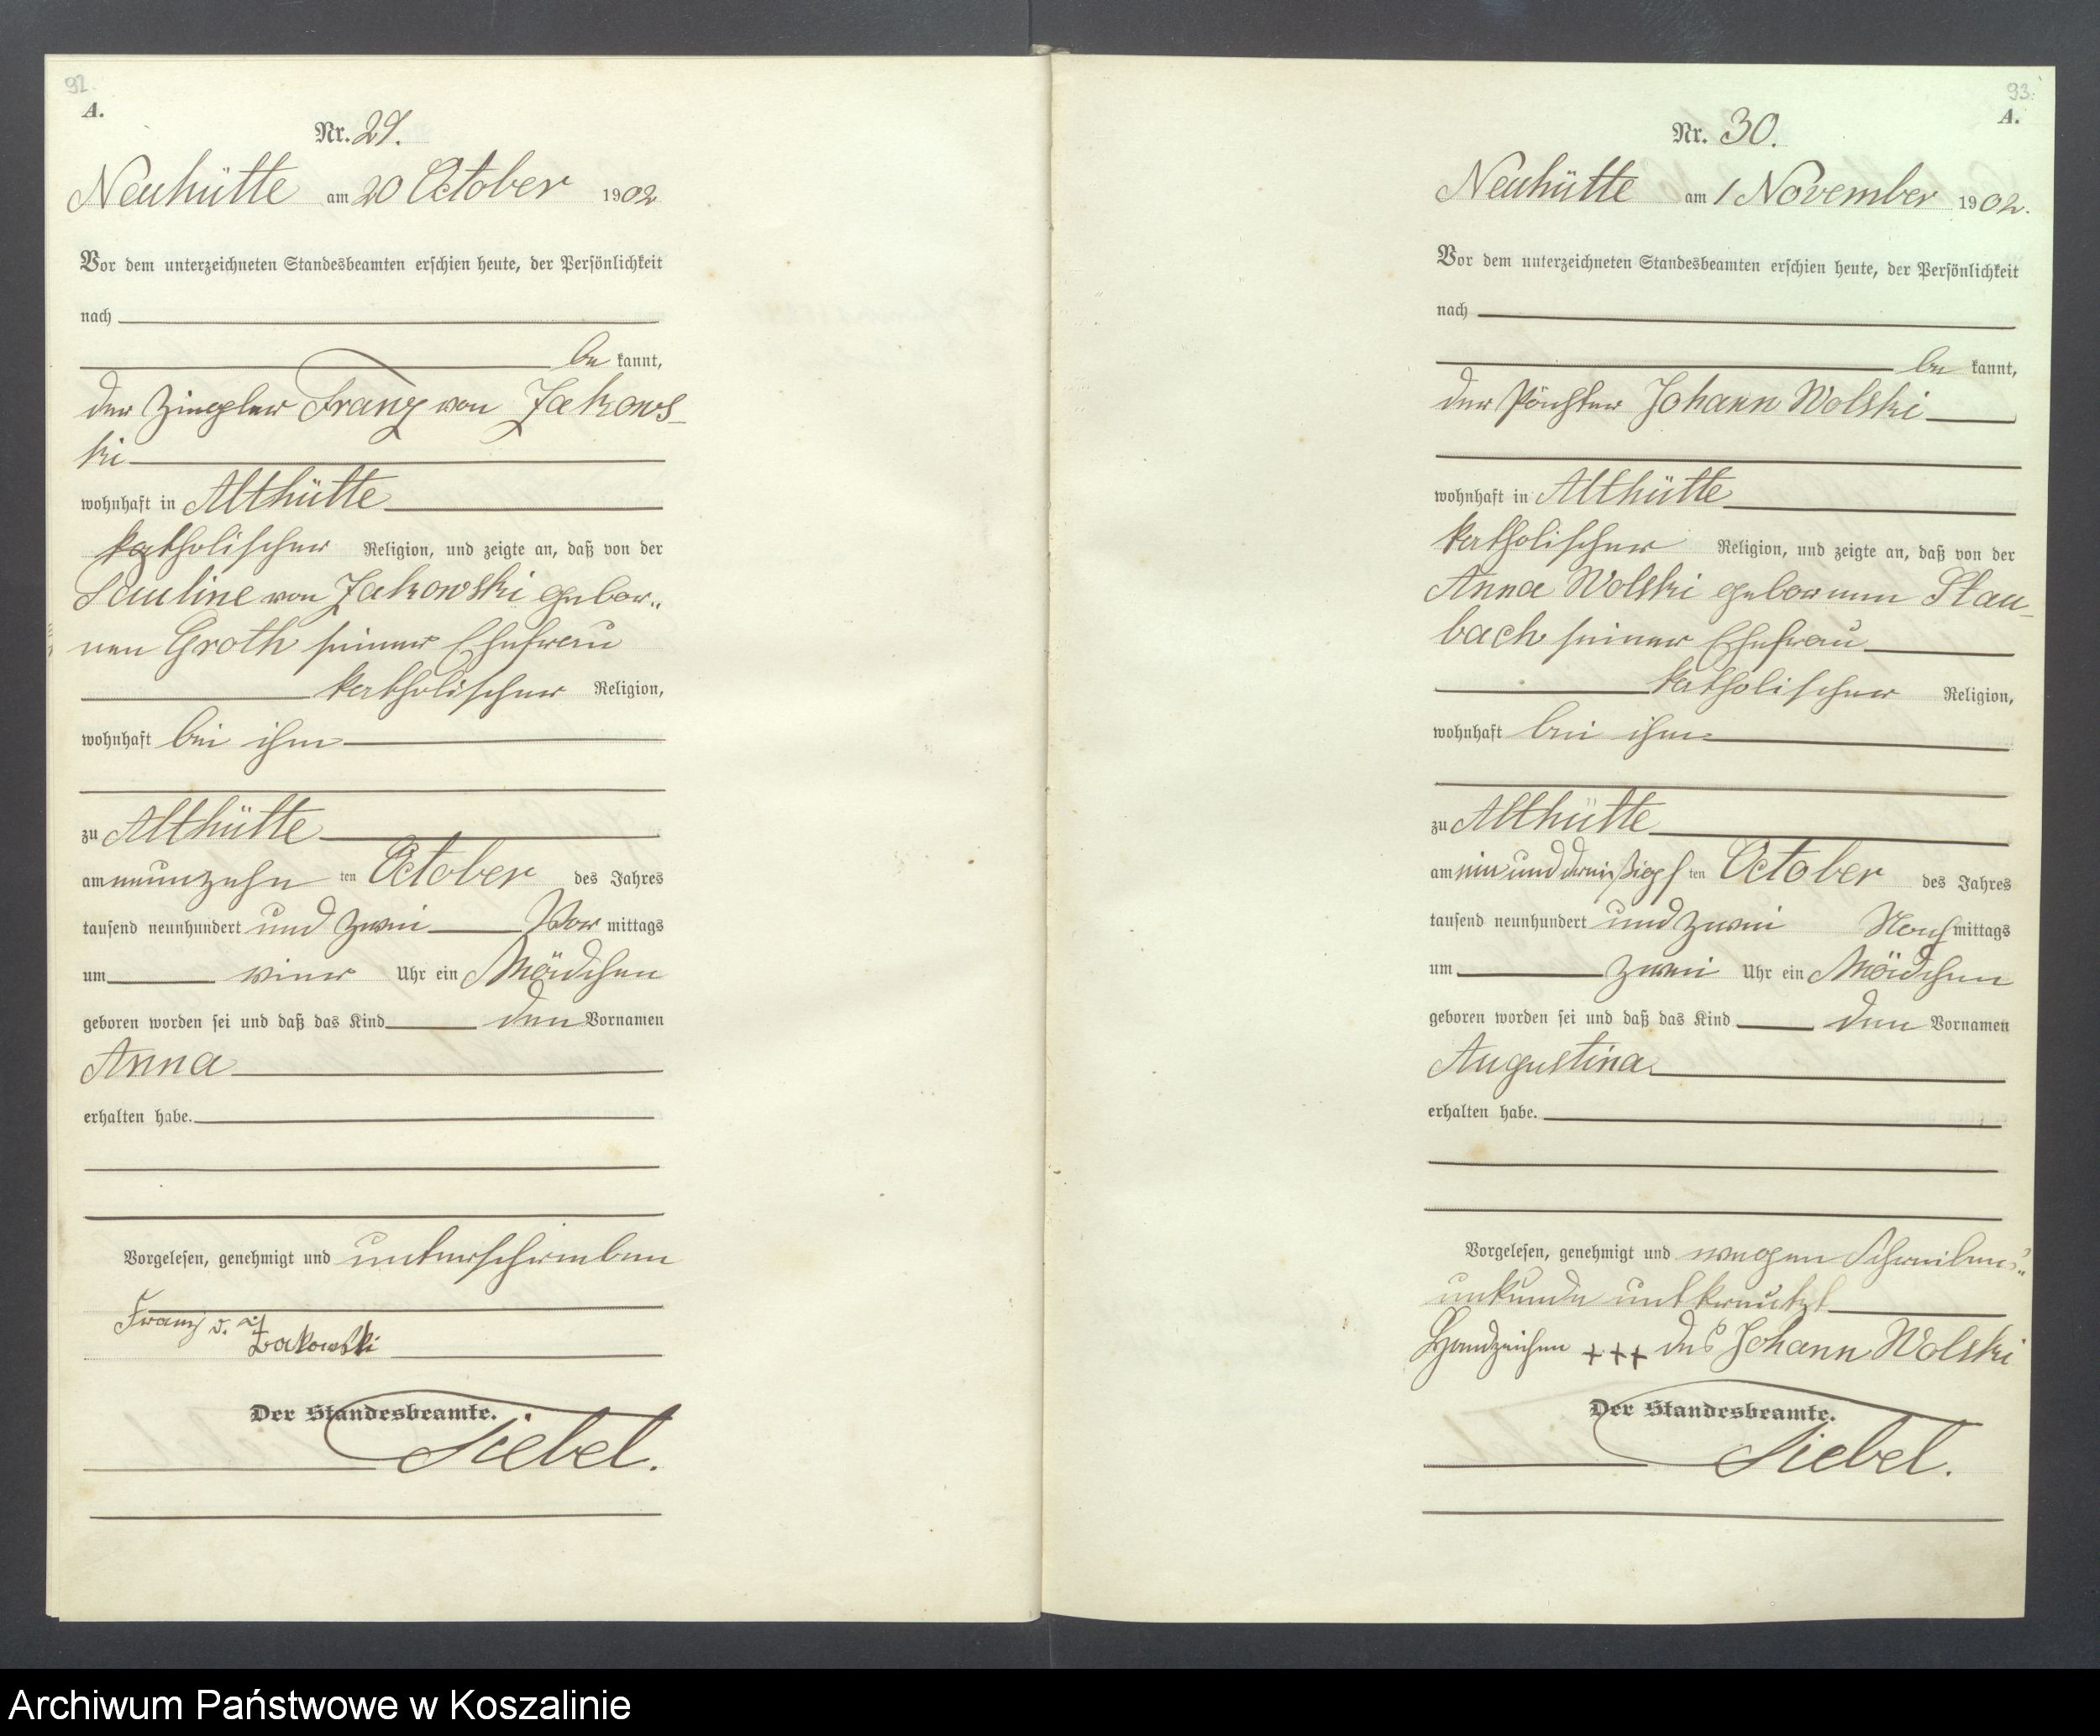 92.
A.
Nr. 29.
Neuhütte am 20 October 1902
Vor dem unterzeichneten Standesbeamten erschien heute, der Persönlichkeit
nach
be kannt,
der Ziegler Franz von Jakows-
ki
wohnhaft in Althütte
katholischer Religion, und zeigte an, daß von der
Pauline von Jakowski gebor„
nen Groth seiner Ehefrau
katholischer Religion,
wohnhaft bei ihm
zu Althütte
am neunzehn ten October des Jahres
tausend neunhundert und zwei Vor mittags
um Uhr ein Mädchen
geboren worden sei und daß das Kind den Vornamen
Anna
erhalten habe.
Vorgelesen, genehmigt und unterschrieben
Franz v.
Jakowski
Der Standesbeamte.
Siebel.
93.
A.
Nr. 30.
Neuhütte am 1 November 1902.
Vor dem unterzeichneten Standesbeamten erschien heute, der Persönlichkeit
nach
be kannt,
der Pächter Johann Wolski
wohnhaft in Althütte
katholischer Religion, und zeigte an, daß von der
Anna Wolski geborenen Stau-
bach seiner Ehefrau
katholischer Religion,
wohnhaft bei ihm
zu Althütte
am ein und dreißigs ten October des Jahres
tausend neunhundert und zwei Nach mittags
um zwei Uhr ein Mädchen
geboren worden sei und daß das Kind den Vornamen
Augustina
erhalten habe.
Vorgelesen, genehmigt und wegen Schreibens„
unkunde unterkreuzt
Handzeichen +++ des Johann Wolski
Der Standesbeamte.
Siebel.
Archiwum Państwowe w Koszalinie